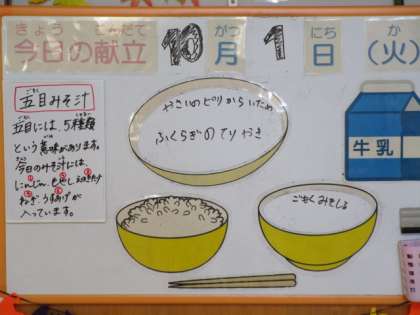 きょう こんだて がつ にち か
今日の献立 10月 1日 (火)
ごもく しる
五目みそ汁
五目には、5種類
という意味があります。
今日のみそ汁には、
にんじん もやし えのきたけ
ねぎ うすあげが
入っています。
やさいのピリからいため
ふくらぎのてりやき
ごもくみそしる
牛乳